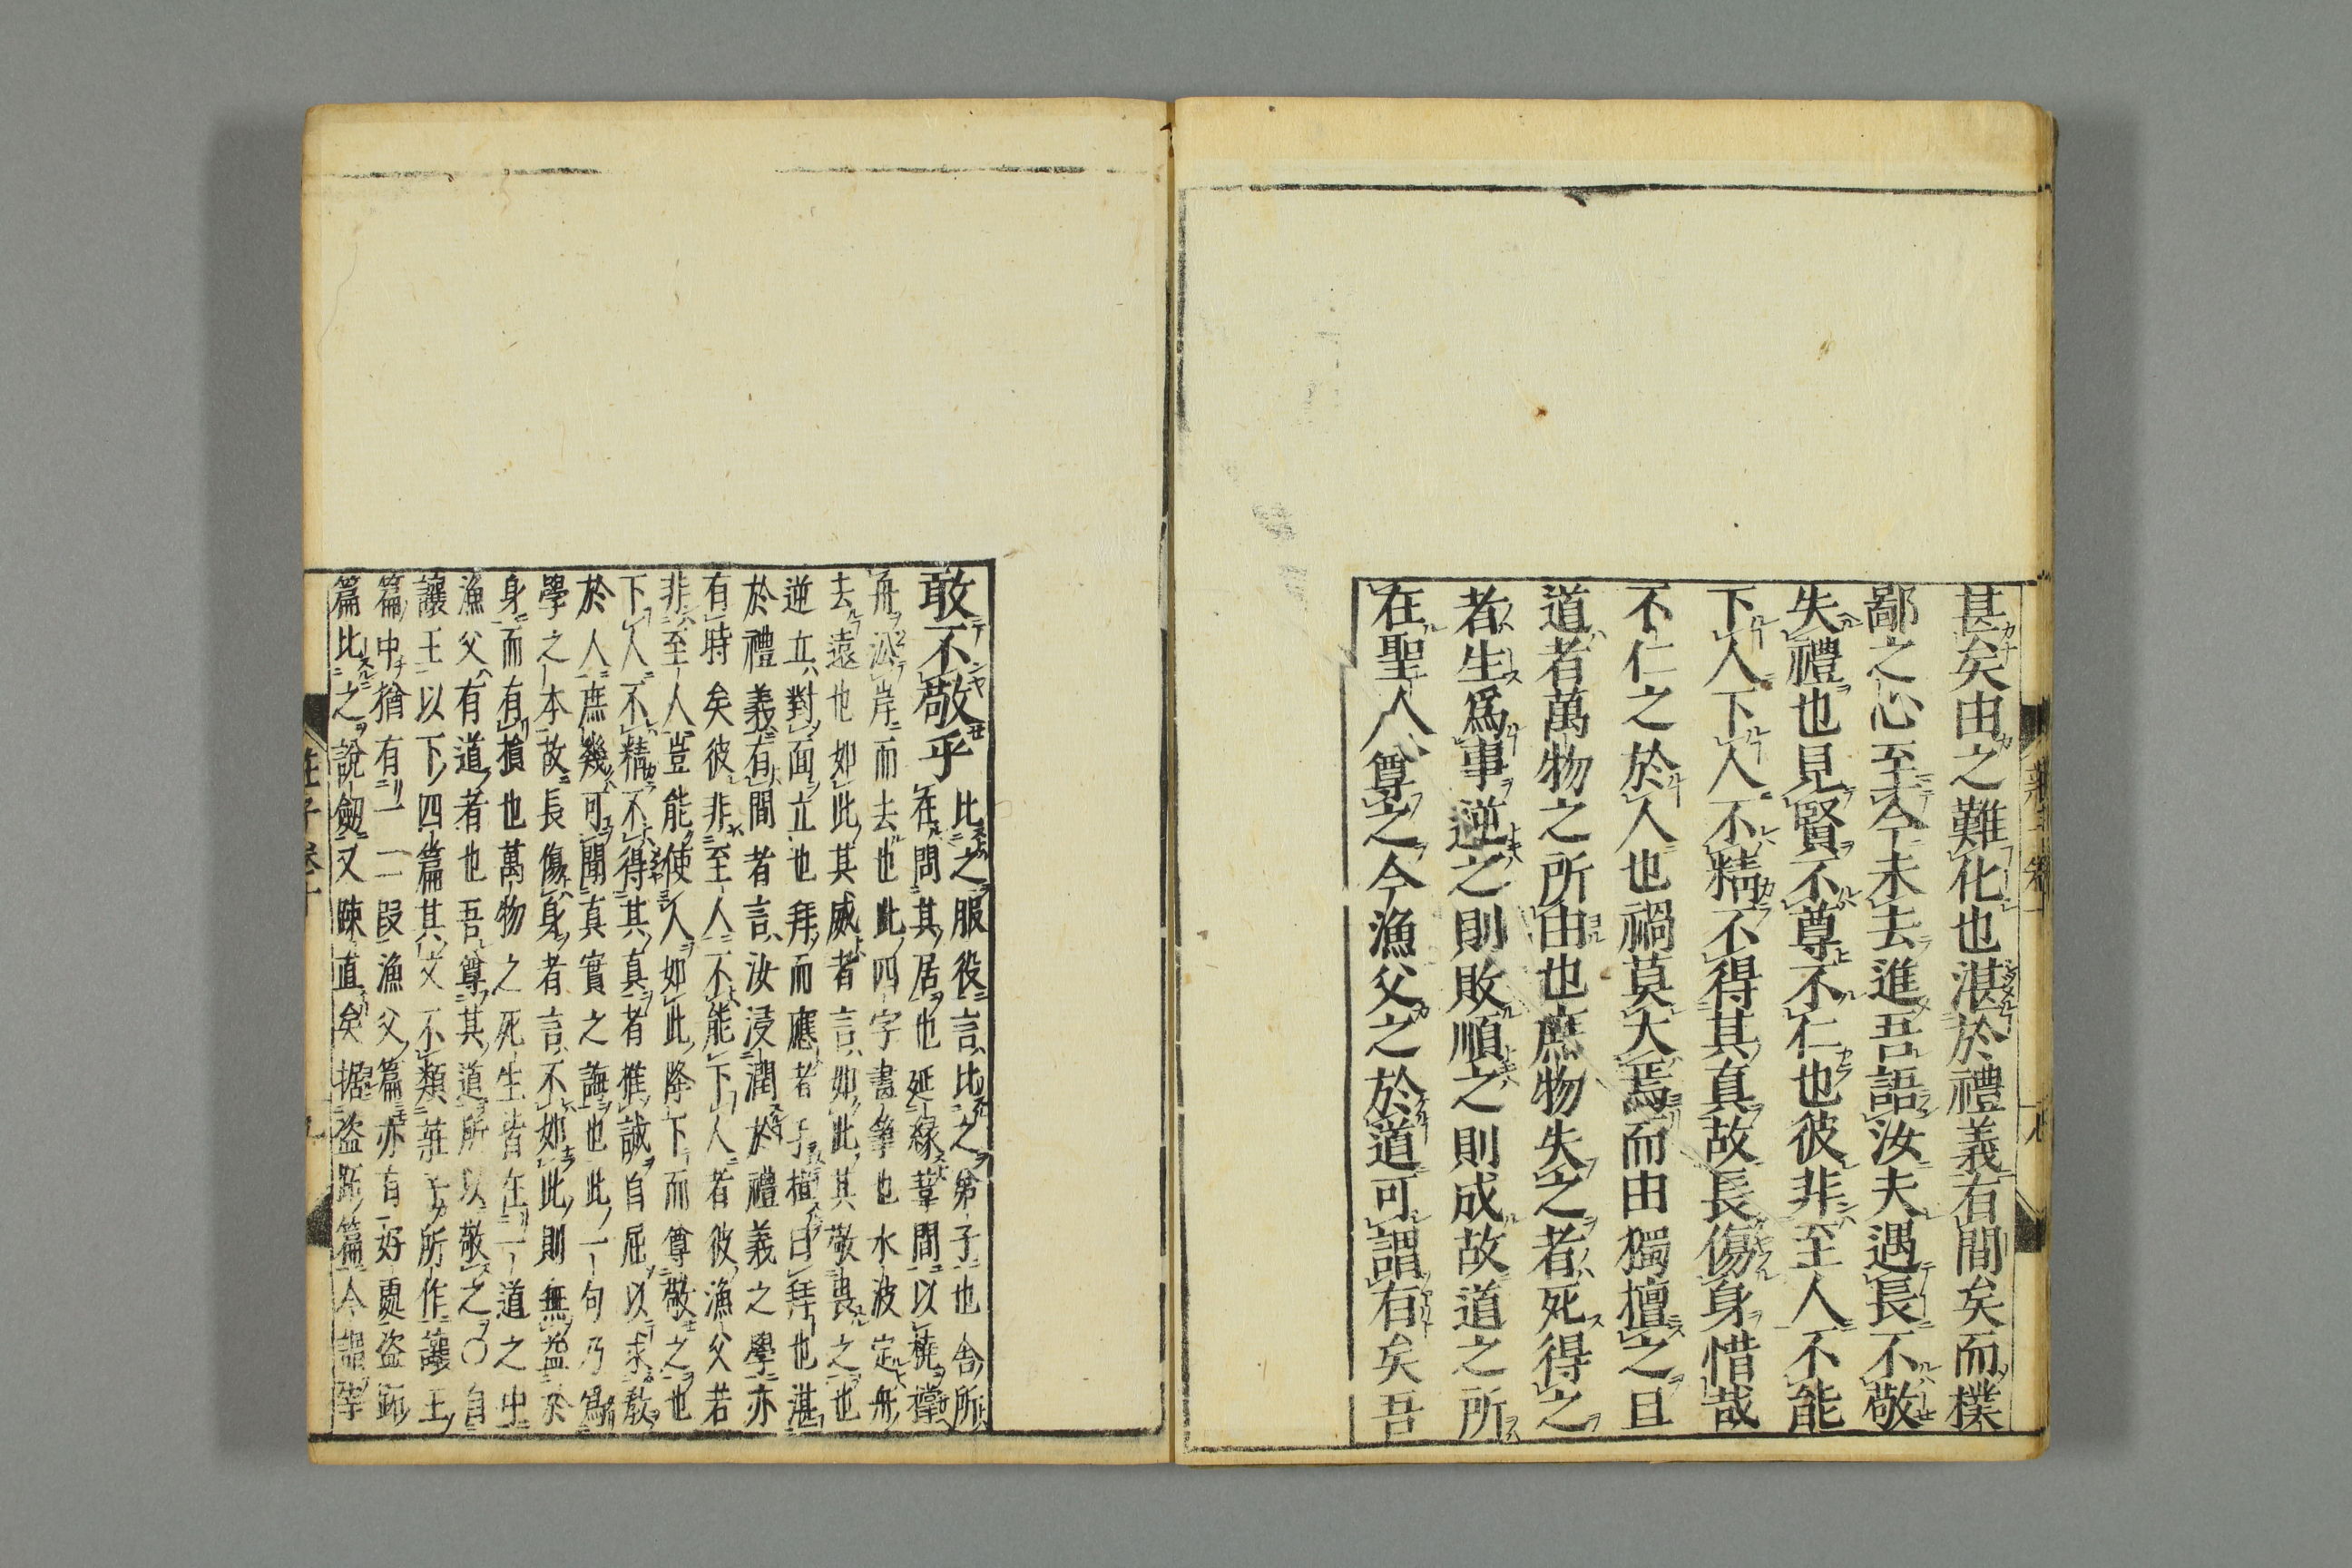 甚矣由之難化也湛於禮義有間矣而樸
鄙之心至今未去進吾語汝夫遇長不敬
失禮也見賢不尊不仁也彼非至人不能
下人下人不精不得其真故長傷身惜哉
不仁之於人也禍莫大焉而由獨擅之且
道者萬物之所由也庶物失之者死得之
者生爲事逆之則敗順之則成故道之所
在聖人尊之今漁父之於道可謂有矣吾
敢不敬乎
比之服役言比之弟子也舍所
在問其居也延緣葦間以橈撑
舟㳂岸而去也此四字畫筆也水波定舟
去遠也如此其威者言如此其敬畏之也
逆立對面立也拜而應者予檀曰拜也湛
於禮義有間者言汝浸潤於禮義之學亦
有時矣彼非至人不能下人者彼漁父若
非至人豈能使人如此降下而尊敬之也
下人不精不得其真者推誠自屈以求教
於人庶幾可聞真實之誨也此一句乃爲
學之本故長傷身者言不如此則無益於
身而有損也萬物之死生皆在一道之中
漁父有道者也吾尊其道所以敬之〇自
讓王以下四篇其文不類莊子所作讓王
篇中猶有一二段漁父篇亦有好處盜跖
篇比之說劒又踈直矣据盜跖篇今謂宰
莊子卷十